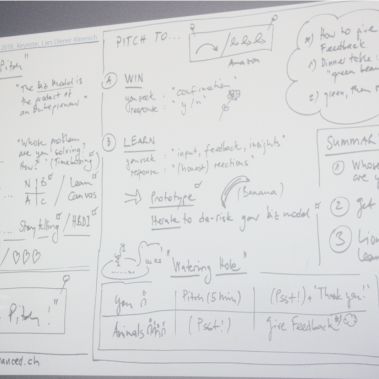 Pitch!"
"The biz model is
the product of
an Entrepreneur"
"Whose problem
are you solving?
How?" (Timeboxing)
N | B
A | C
/ Learn
Canvas
Storytelling / HBDI
Pitch!"
anced.ch
PITCH TO...
Amazon
A WIN
you seek : "confirmation"
response : "y/n"
B LEARN
you seek : "input, feedback, insights"
response : "(honest) reactions"
→ Prototype
(Banana)
Iterate to de-risk your biz model
"Watering Hole"
you | Pitch (5 min) | (Psst!) + "Thank you!"
Animals | (Psst!) | give Feedback
How to give
Feedback
1) Dinner table :
"green bea
2) green, then r
SUMMAR
1 Whose
are y
2 Get
3 Lion
Learn